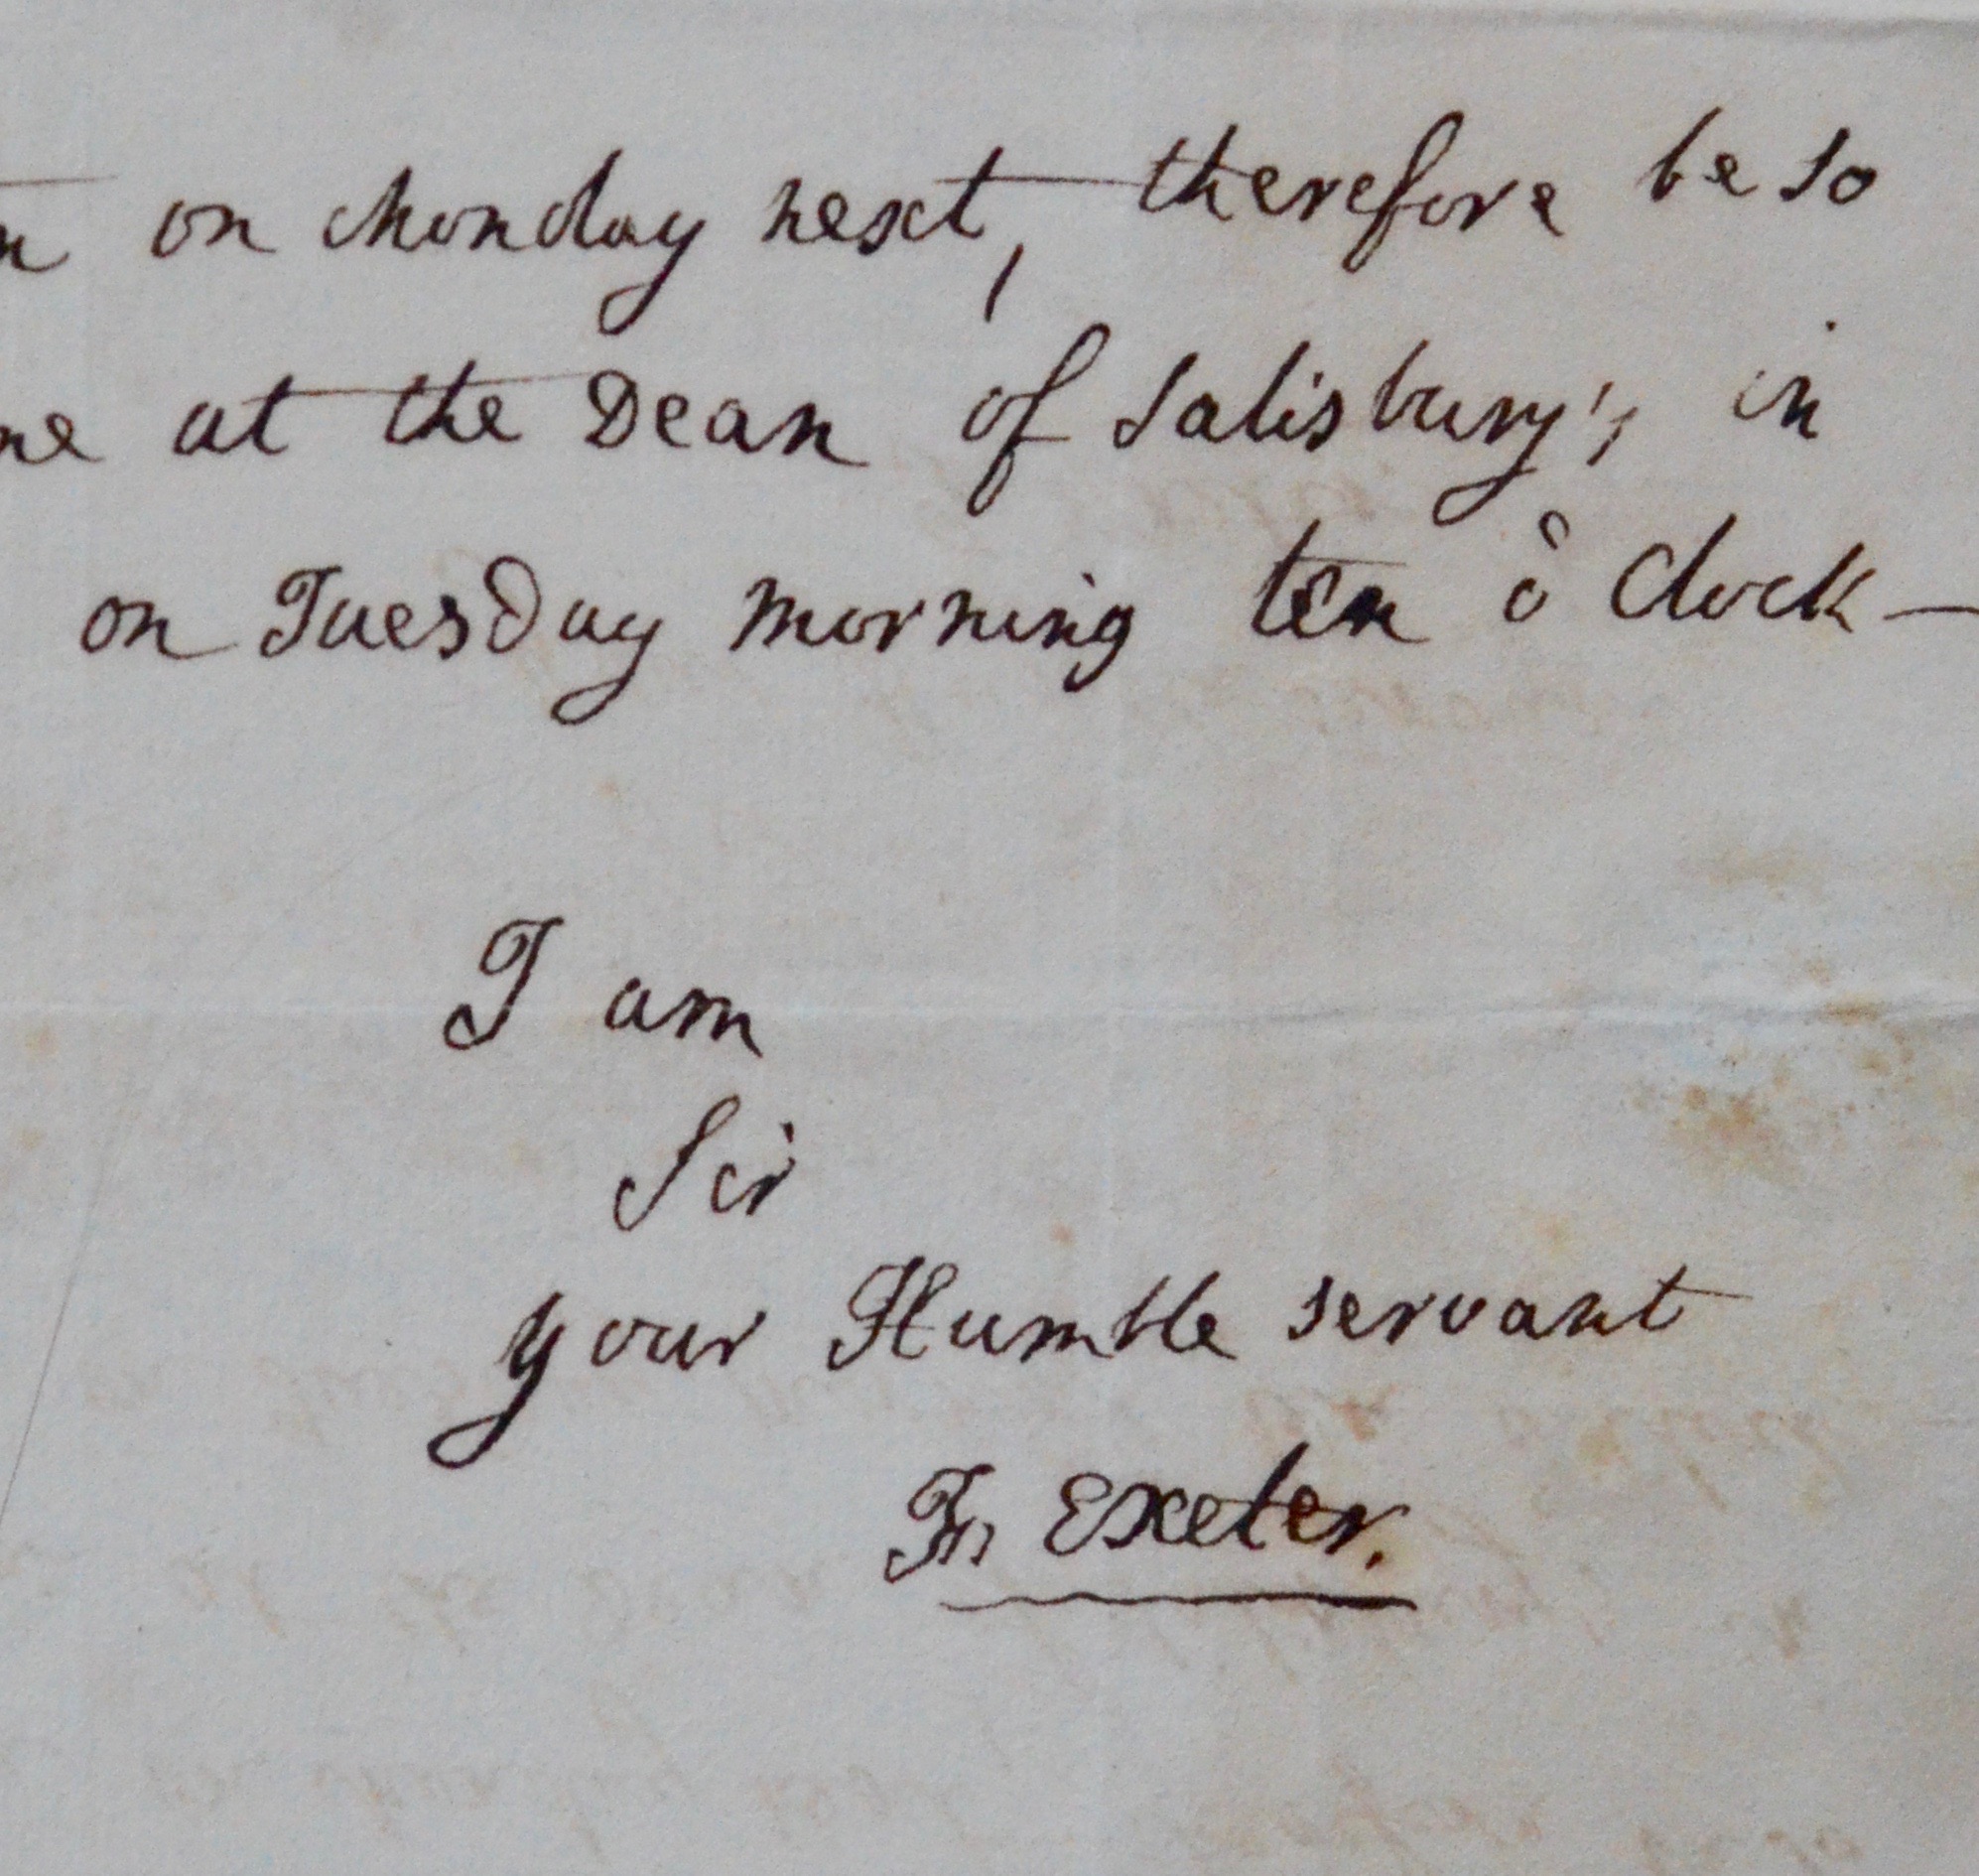 on Monday next, therefore be so
at the Dean of Salisbury's in
on Tuesday morning ten o Clock —
I am
Sir
your Humble servant
Exeter.